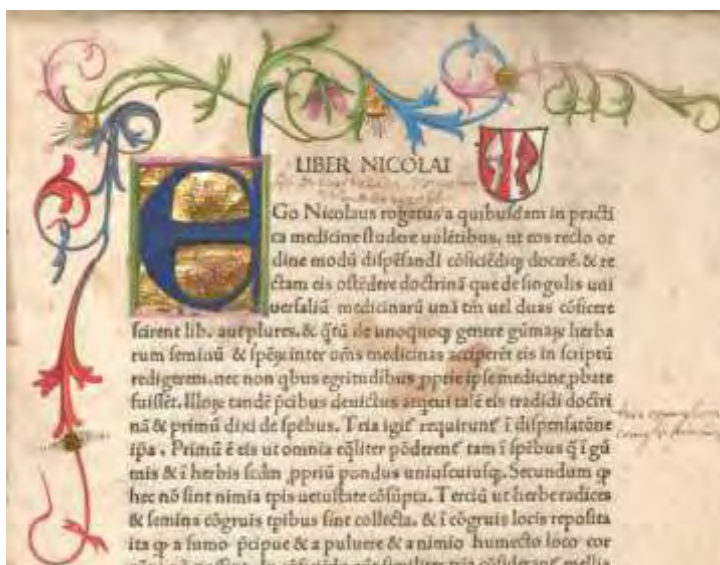 LIBER NICOLAI
EGo Nicolaus rogatus a quibusdam in practi
ca medicine studere uolētibus, ut eos recto or
dine modū dispēsandi cōficiēdiq; docerē. & re
ctam eis ostēdere doctrinā que de singulis uni
uersaliū medicinarū unā tm̄ uel duas cōficere
scirent lib. aut plures. & q̄tū de unoquoq; genere gūmaꝝ herba
rum seminū & spēꝝ inter om̄s medicinas acciperēt eis in scriptū
redigerem. nec non qbus egritudibus ꝓprie ipse medicine ꝓbate
fuissēt. Illoꝝ tandē p̄cibus deuictus talē eis tradidi doctri
nā & primū dixi de spēbus. Tria igit̄ requirunt̄ ī dispensatōne
ipa. Primū ē eis ut omnia eq̄liter pōderent̄ tam ī spēbus q̄ ī gū
mis & ī herbis scdm ꝓpriū pondus uniuscuiusq;. Secundum ꝙ
hec nō sint nimia tpis uetustate cōsūpta. Terciū ut herbe radices
& semina cōgruis tpibus sint collecta. & ī cōgruis locis reposita
ita ꝙ a fumo p̄cipue & a puluere & a nimio humecto loco cor